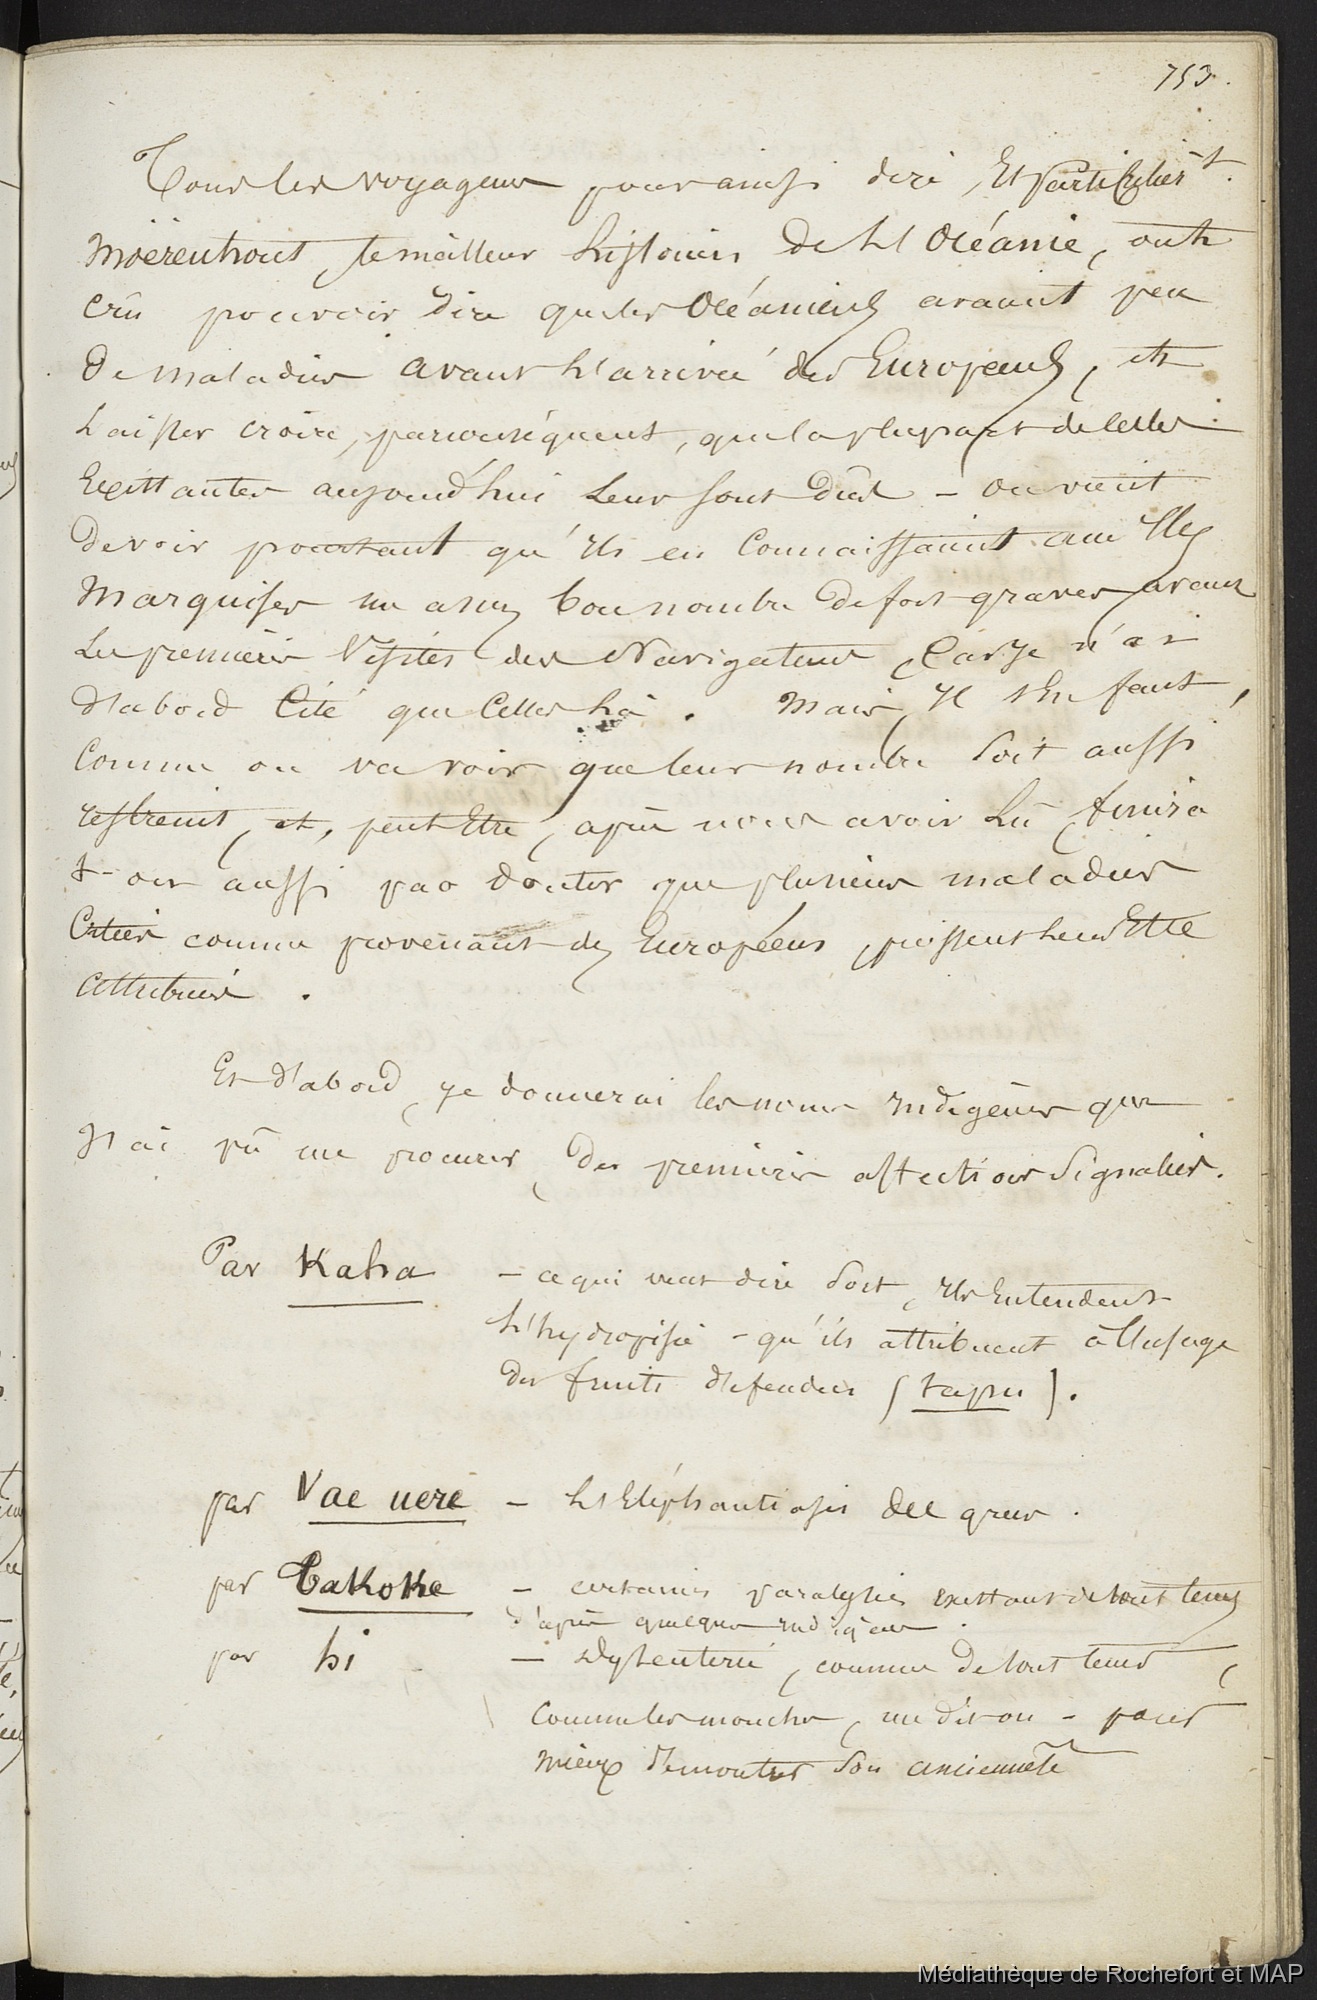 753.
Tous les voyageurs pour ainsi dire, Et Particulièrt.
Moërenhout, le meilleur historien de l'Océanie, ont
crû pouvoir dire que les Océaniens avaient peu
de maladies avant l'arrivée des Européens, et
laisser croire, par conséquent, que la plupart de celles
Existantes aujourd'hui leur sont dûes - on vient
de voir pourtant qu'ils en connaissaient aux îles
Marquises un assez bon nombre de fort graves, avant
les premières Visites des Navigateurs, Car je n'ai
d'abord Cité que Celles là. Mais, Il s'en faut,
Comme on va voir que leur nombre soit aussi
restreint, et, peut Etre, après nous avoir lû, finira
t-on aussi par douter que plusieurs maladies
Citées comme provenant des Européens, puissent leur Etre
attribuées.
Et d'abord, je donnerai les noms indigènes que
J'ai pû me procurer, des premières affections signalées.
Par Kaha - ce qui veut dire sort, Ils Entendent
l'hydropisie - qu'ils attribuent à l'usage
des fruits défendus (tapu).
par Vae uere - l'Eléphantiasis des grecs.
par Takoke - certaines paralysies existant de tout tems
d'après quelques indigènes.
par hi - dyssenterie, connue de tout tems,
Comme les mouches, me dit on - pour
mieux démontrer son ancienneté
Médiathèque de Rochefort et MAP